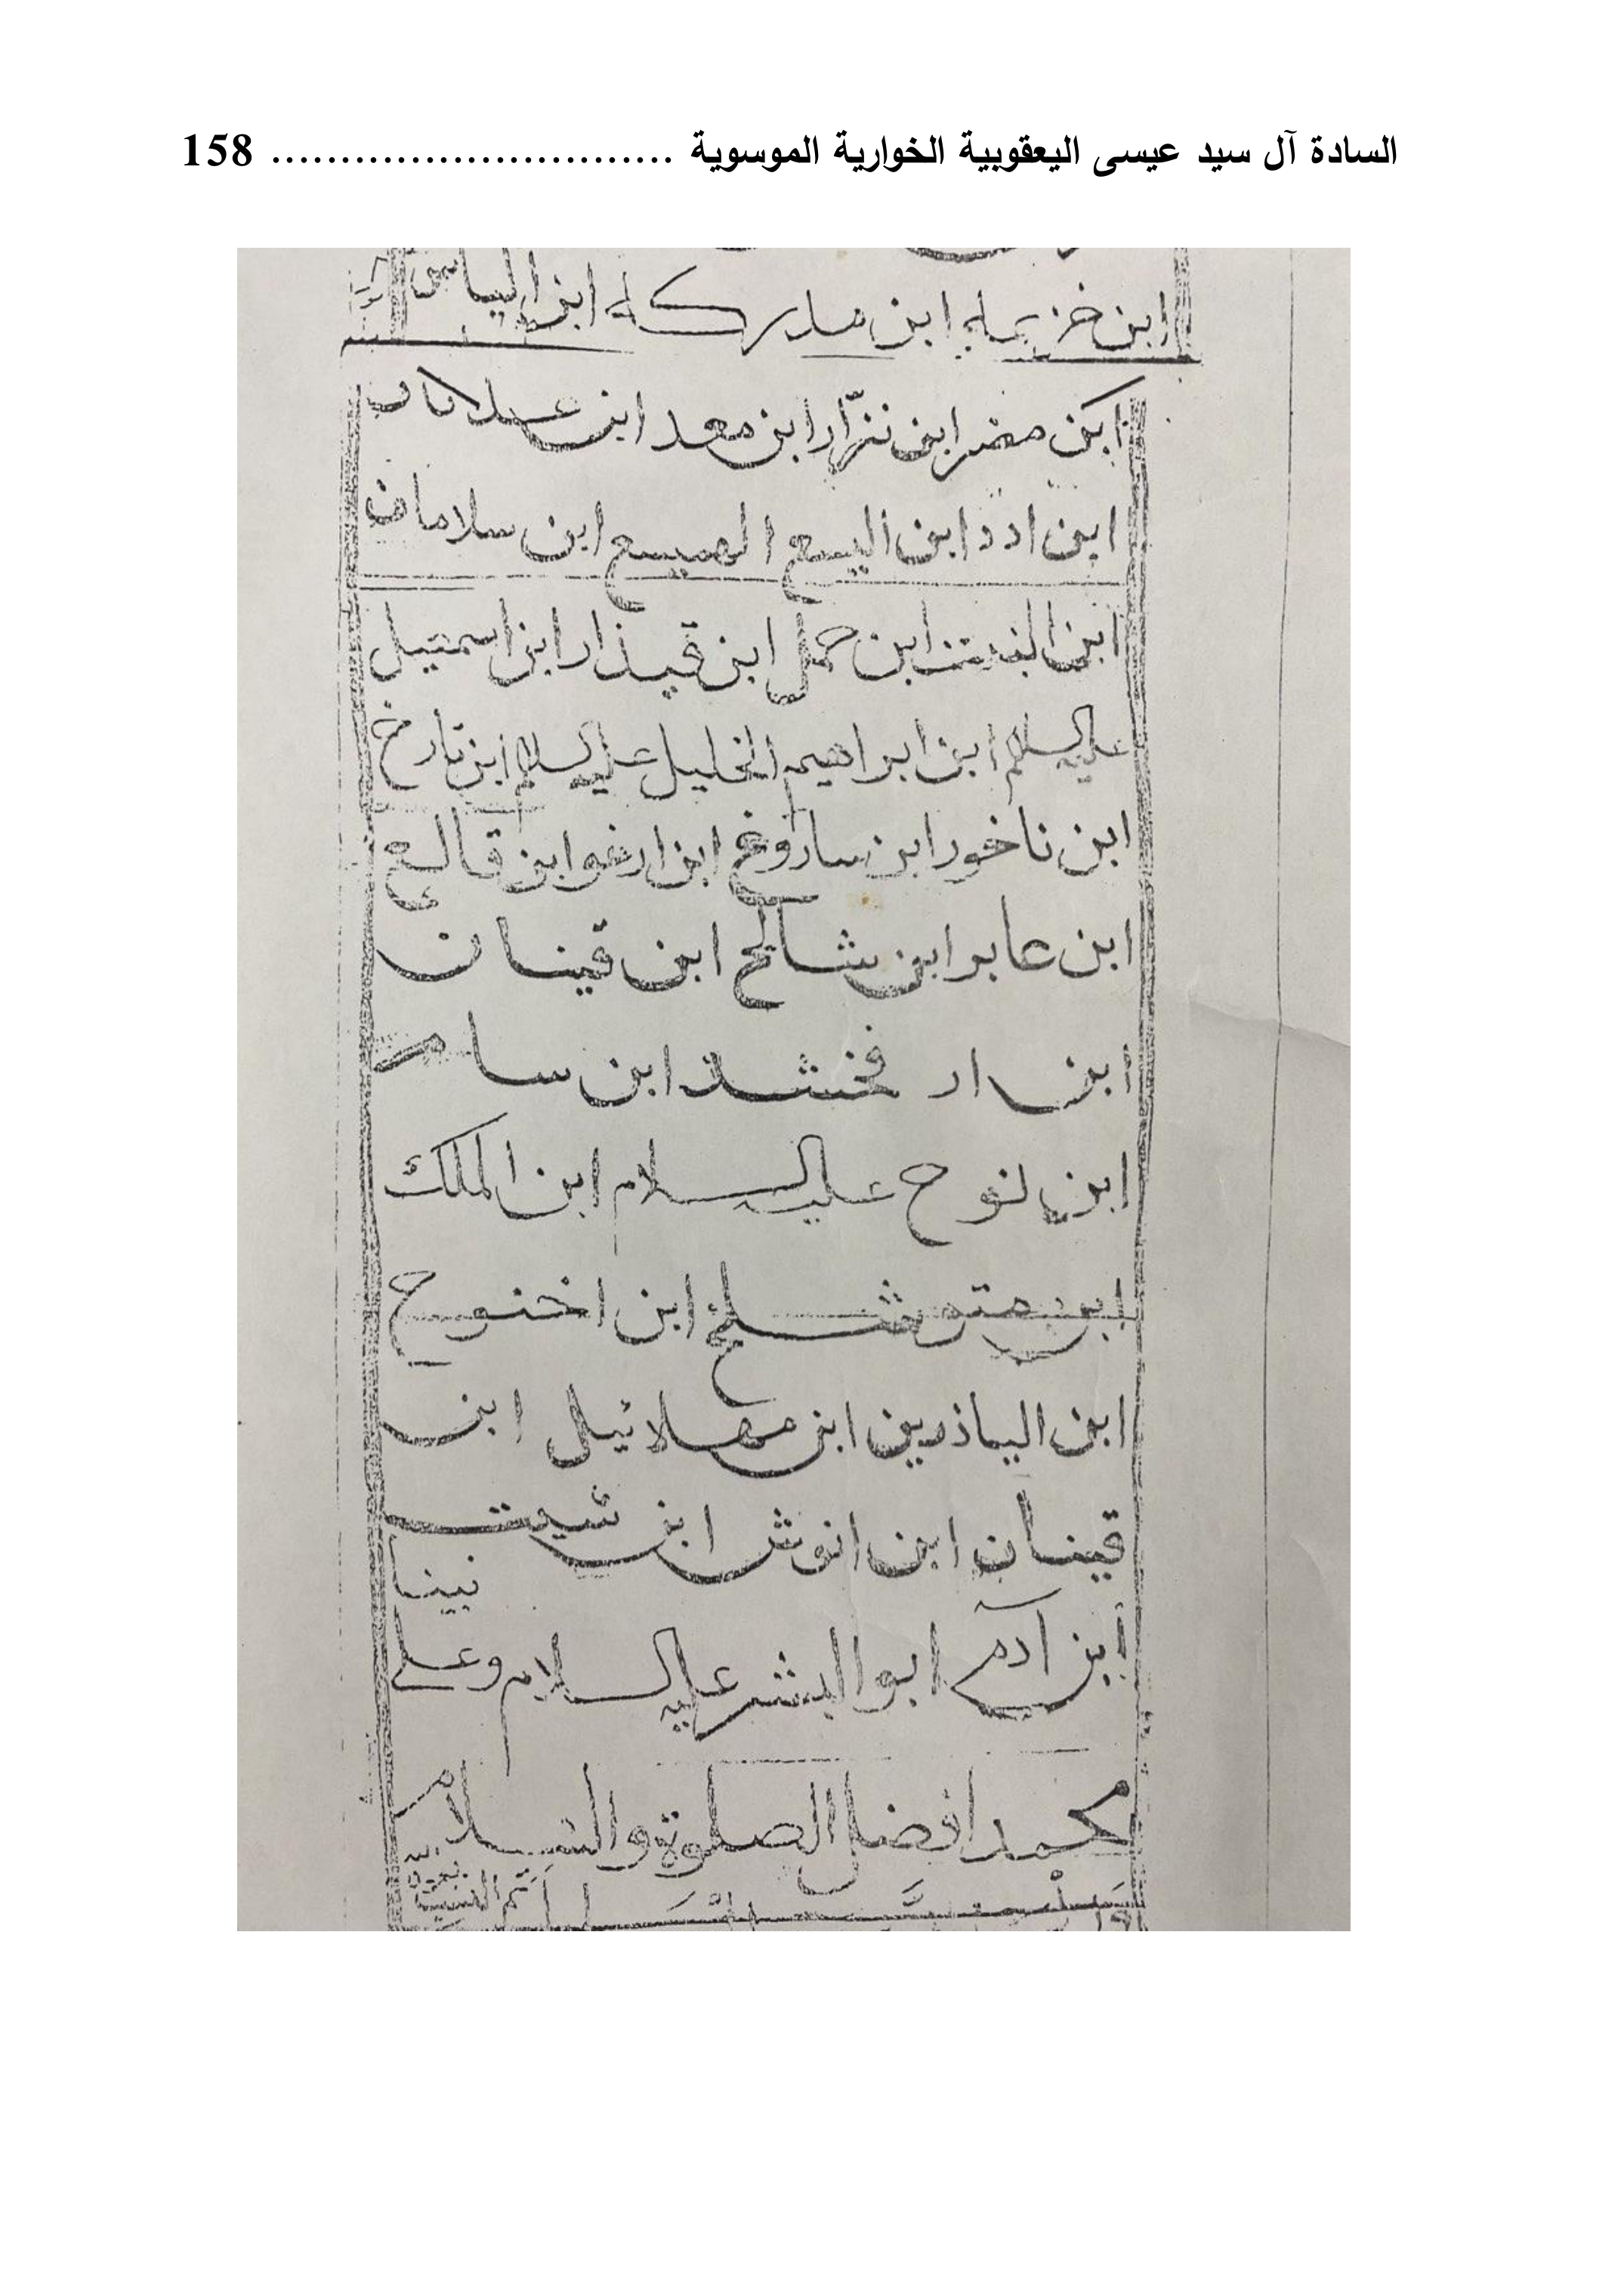 السادة آل سيد عيسى اليعقوبية الخوارية الموسوية ............................. 158
ابن خزيمه ابن مدركه ابن الياس
ابن مضر ابن نزار ابن معد ابن عدنان
ابن ادد ابن اليسع الهميسع ابن سلامان
ابن النبت ابن حمل ابن قيذار ابن اسمعيل
عليه السلام ابن ابراهيم الخليل عليه السلام ابن تارخ
ابن ناخور ابن ساروغ ابن ارغو ابن قالع
ابن عابر ابن شالخ ابن قينان
ابن ار فخشذ ابن سام
ابن نوح عليه السلام ابن الملك
ابن متوشلخ ابن اخنوخ
ابن الياذرين ابن مهلائيل ابن
قينان ابن انوش ابن شيث
نبينا
ابن آدم ابو البشر عليه السلام وعلى
محمد افضل الصلوة والسلام
تم النسب